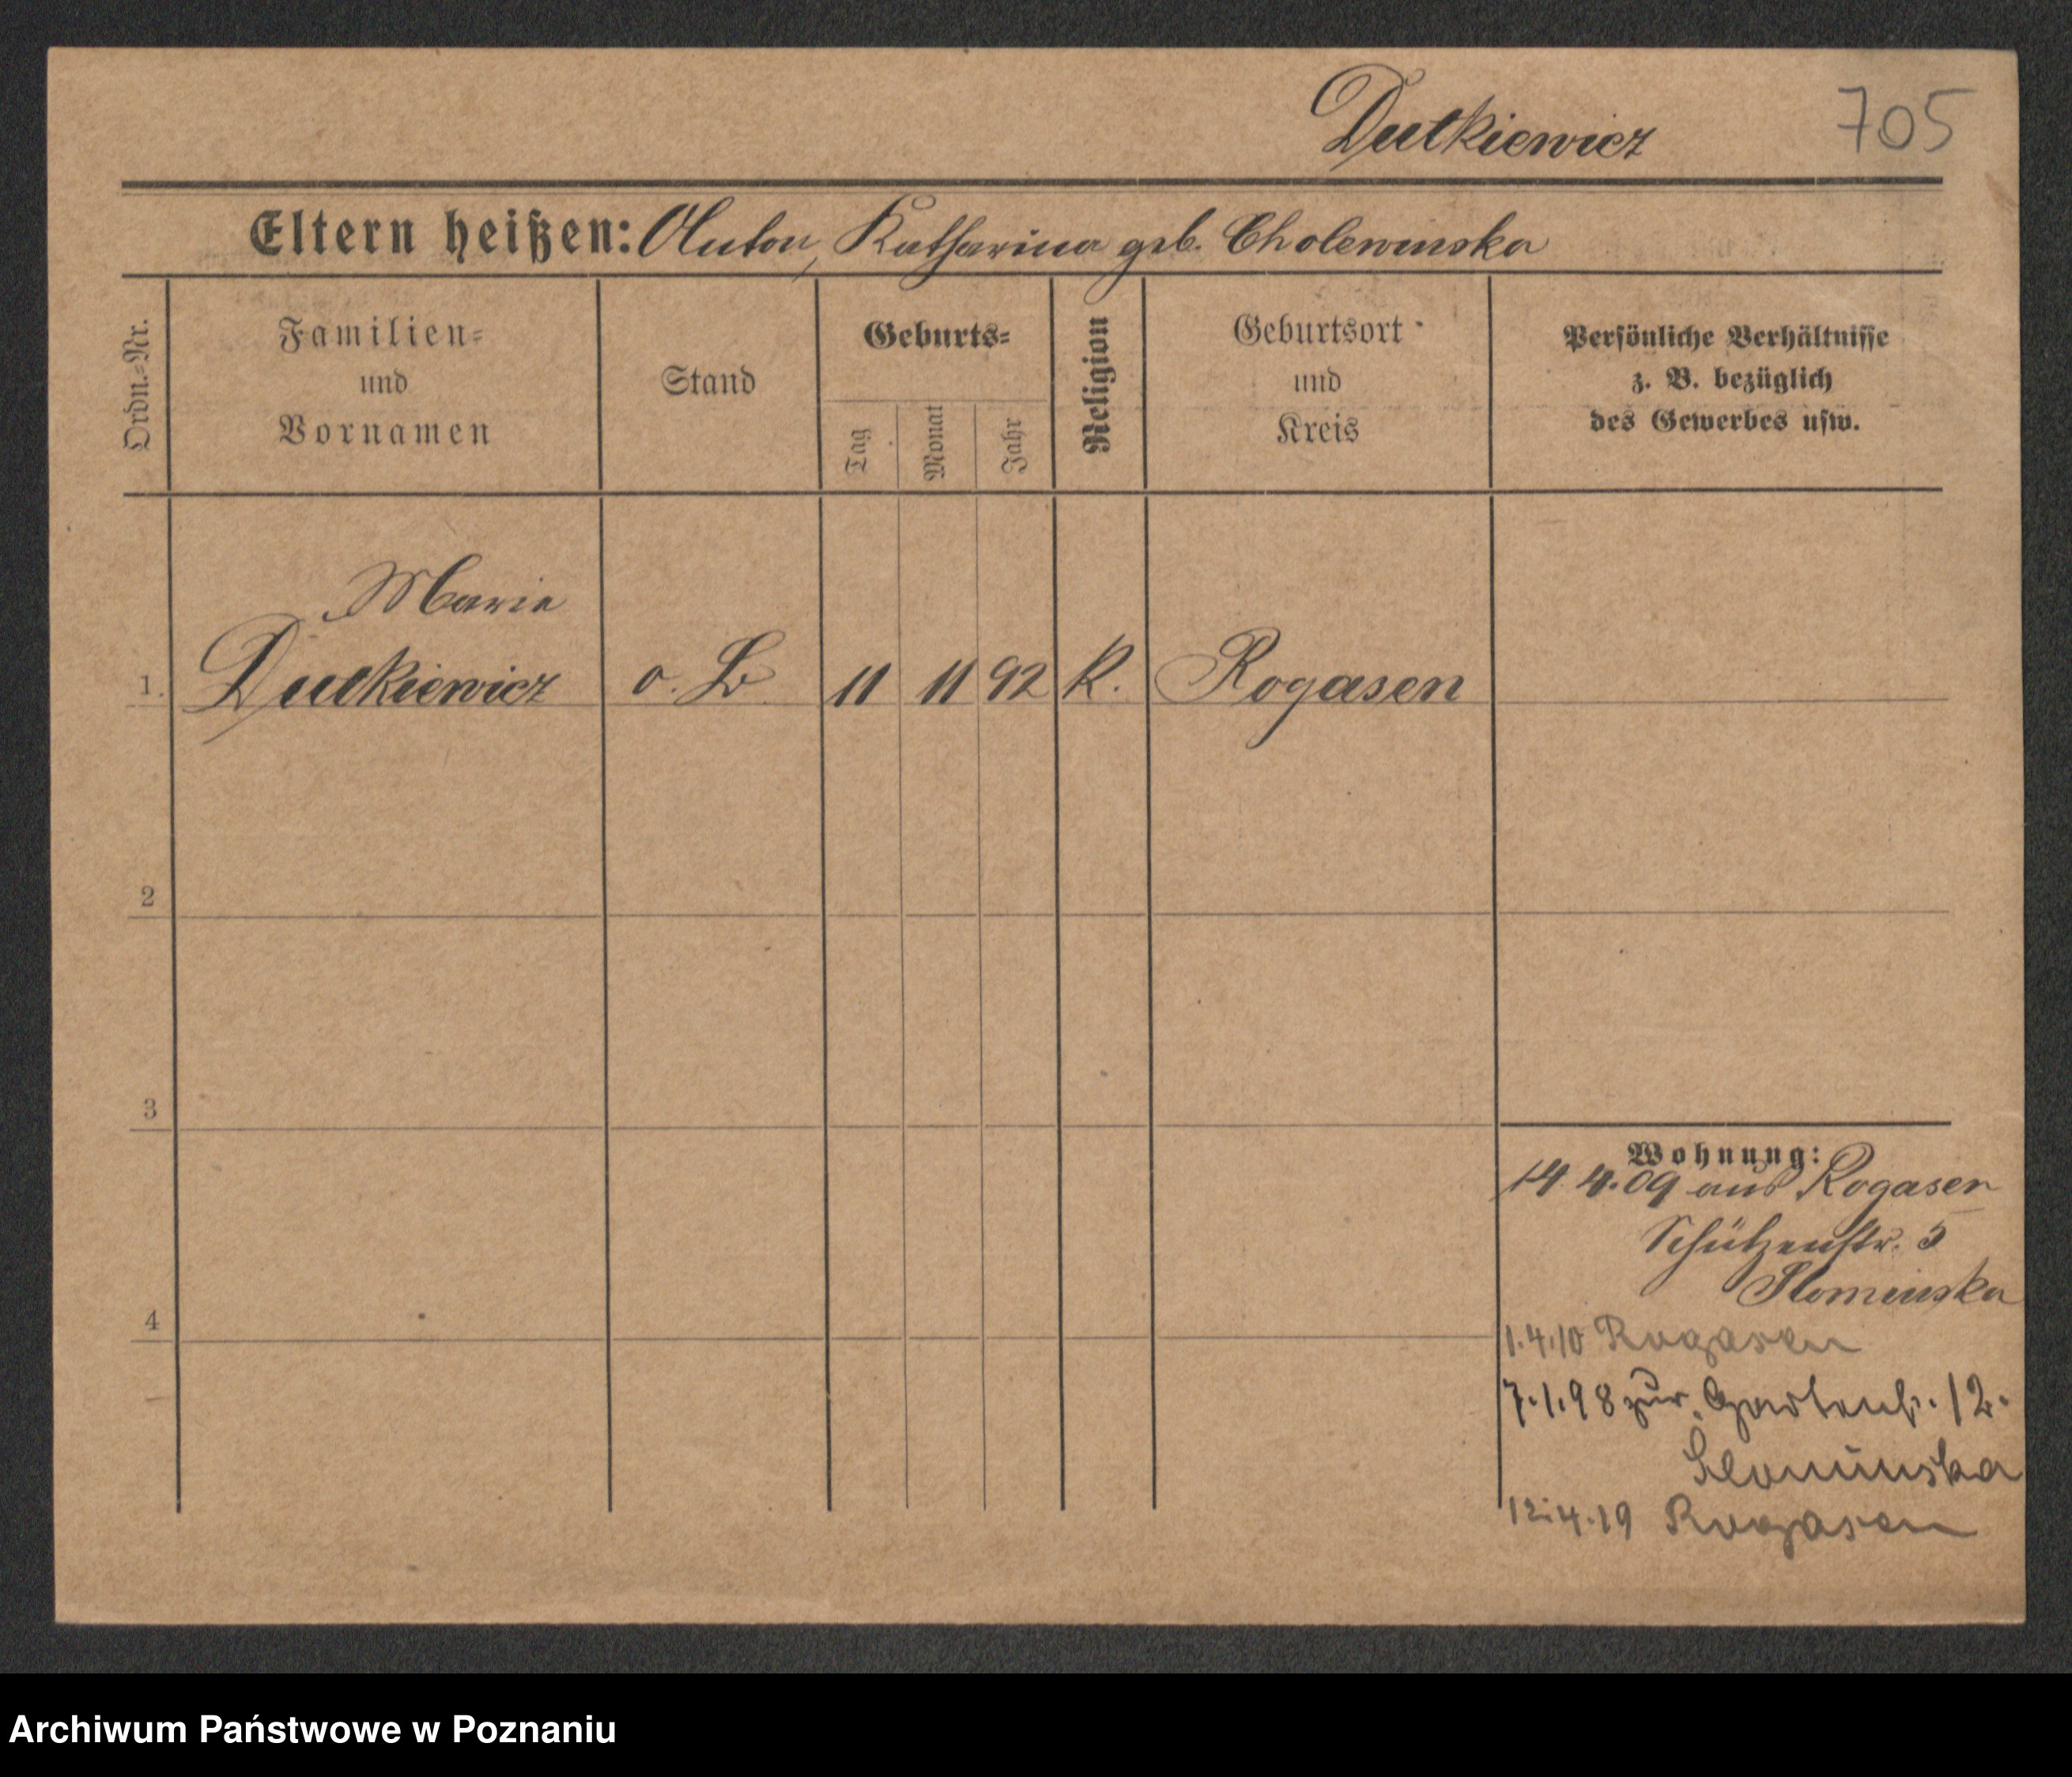 Dutkiewicz 705
Eltern heißen: Anton, Katharina geb. Cholewinska
Ordn.-Nr.
Familien-
und
Vornamen
Stand
Geburts-
Tag
Monat
Jahr
Religion
Geburtsort
und
Kreis
Persönliche Verhältnisse
z. B. bezüglich
des Gewerbes usw.
Marie
1. Dutkiewicz o. B 11 11 92 k. Rogasen
2
3
4
Wohnung:
14 4.09 aus Rogasen
Schützenstr. 5
Slominska
1.4.10 Rogasen
7.1.98 zur. Gartenstr. 12.
Slominska
12.4.19 Rogasen
Archiwum Państwowe w Poznaniu